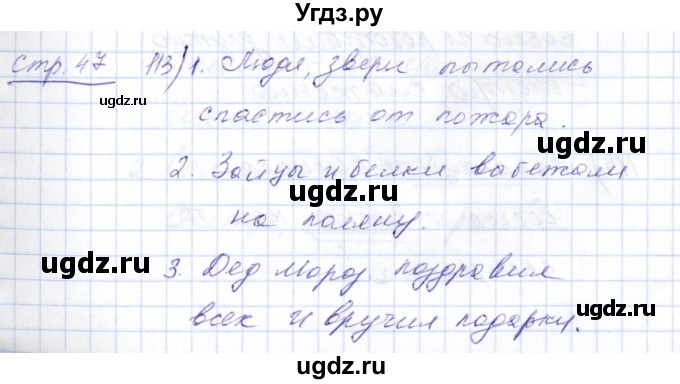 Угдз.ру
стр. 47 113) 1. Люди, звери пытались
ugdz.ru
спастись от пожара.
ugdz.ru
2. Зайцы и белки выбежали
ugdz.ru
ugdz.ru
на поляну.
ugdz.ru
ugdz.ru
3. Дед Мороз поздравил
ugdz.ru
всех и вручил подарки.
ugdz.ru
ugdz.ru